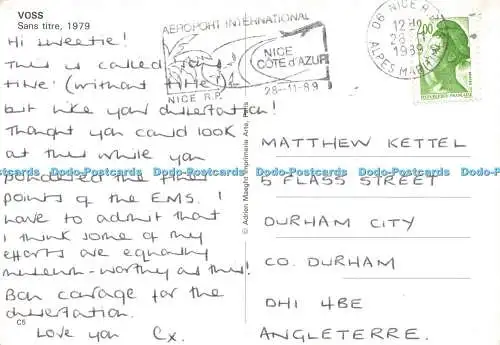 VOSS
Sans titre, 1979
Hi sweetie!
This is called 'sans-
titre' (without title)
but like your dissertation!
Thought you could look
at this while you
pondered the finer
points of the EMS. I
have to admit that
I think some of my
efforts are equally
museum-worthy as this!
Bon courage for the
dissertation.
Love you Cx.
C5
© Adrien Maeght Imprimerie Arte, Paris
AEROPORT INTERNATIONAL
NICE
CÔTE d'AZUR
NICE R.P. 28-11-89
06 NICE R.P.
28-11
1989
ALPES MARITIMES
2,00
REPUBLIQUE FRANÇAISE
MATTHEW KETTEL
5 FLASS STREET
DURHAM CITY
CO. DURHAM
DH1 4BE
ANGLETERRE.
Dodo-Postcards Dodo-Postcards Dodo-Postcards